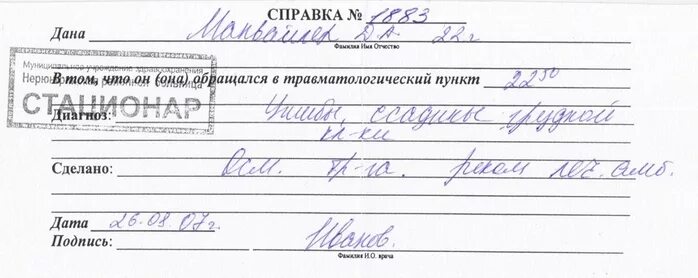 СПРАВКА № 1883
Дана Манвайлер Д.А. 22 г
Фамилия Имя Отчество
Муниципальное учреждение здравоохранения
Нерюнгринская районная больница
СТАЦИОНАР
В том, что он (она) обращался в травматологический пункт 22 50
Диагноз: Ушибы, ссадины грудной
кл-ки
Сделано: Осм. тр-га. реком леч. амб.
Дата 26.08.07 г
Подпись: Иванов.
Фамилия И.О. врача